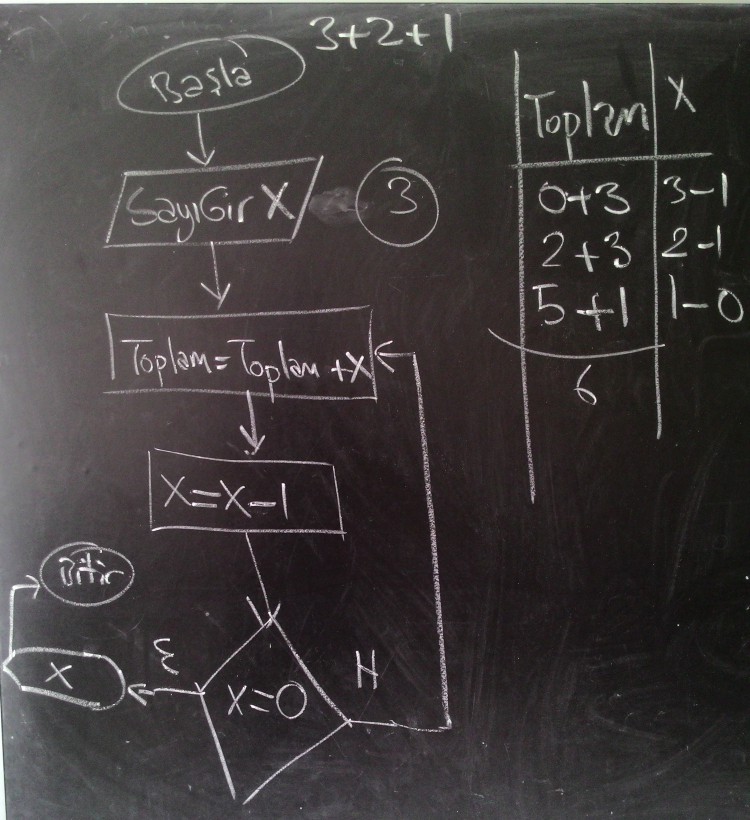 3+2+1
Başla
SayıGir X
3
Toplam=Toplam+X
X=X-1
X=0
E
H
X
Bitir
Toplam X
0+3 3-1
2+3 2-1
5+1 1-0
6